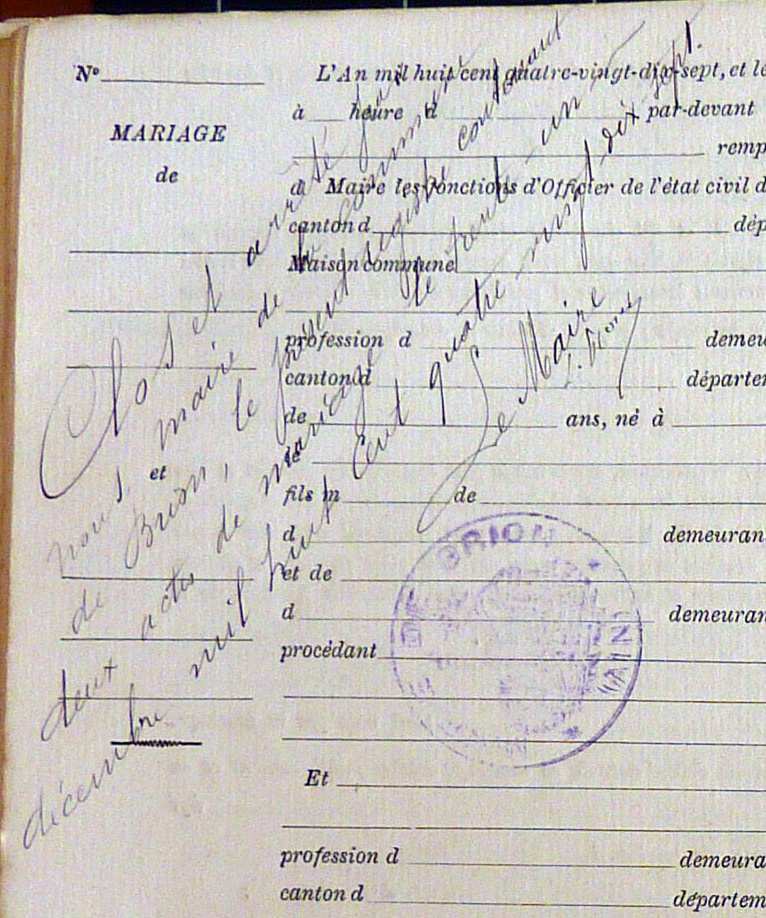 N°
MARIAGE
de
et
L'An mil huit cent quatre-vingt-dix-sept, et le
à heure d par-devant
remp
d Maire les fonctions d'Officier de l'état civil d
canton d dép
Maison commune
profession d demeu
canton d départem
de ans, né à
le
fils m de
d demeuran
et de
d demeurant
procédant
Et
profession d demeura
canton d départem
Clos et arrêté par
nous maire de la commune
de Brion, le présent registre contenant
deux actes de mariage le trente-un
décembre mil huit cent quatre-vingt-dix sept.
Le Maire
DE BRION
(AIN)